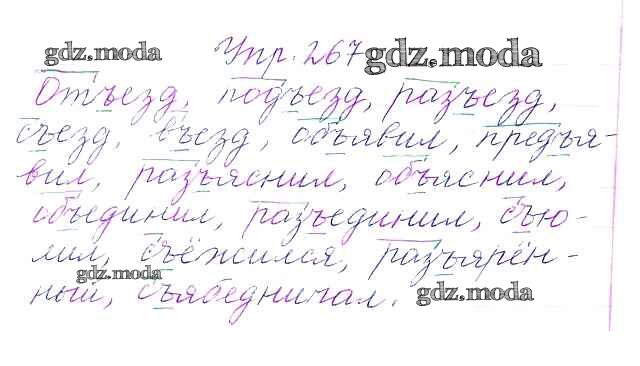 gdz.moda Упр. 267 gdz.moda
Отъезд, подъезд, разъезд,
съезд, въезд, объявил, предъя-
вил, разъяснил, объяснил,
объединил, разъединил, съю-
лил, съёжился, разъярён-
gdz.moda
ный, съябедничал. gdz.moda